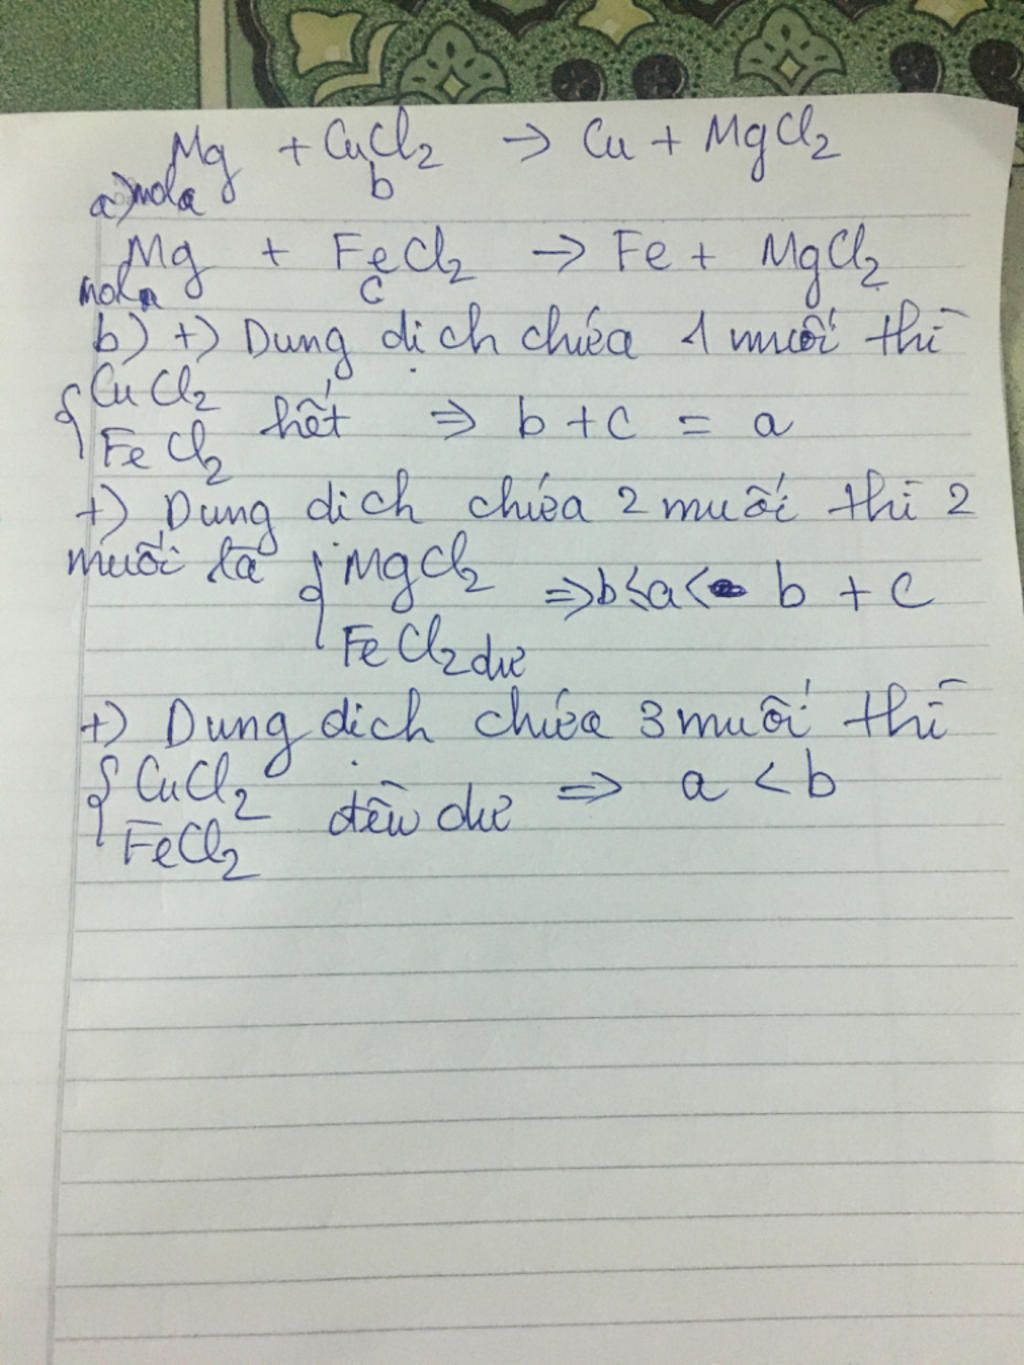 Mg + CuCl2 → Cu + MgCl2
a) mol a b
Mg + FeCl2 → Fe + MgCl2
mol a c
b) +) Dung dịch chứa 1 muối thì
{ CuCl2
FeCl2 hết ⇒ b + c = a
+) Dung dich chứa 2 muối thì 2
muối là { MgCl2
FeCl2 dư ⇒ b ≤ a < b + c
+) Dung dịch chứa 3 muối thì
{ CuCl2
FeCl2 đều dư ⇒ a < b